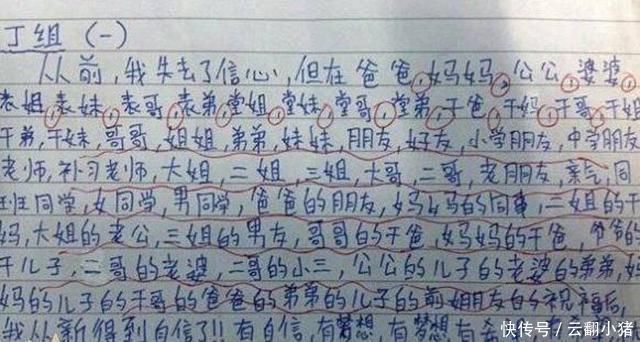 丁组 (一)
从前,我失去了信心,但在爸爸,妈妈,公公,婆婆,
表姐,表妹,表哥,表弟,堂姐,堂妹,堂哥,堂弟,干爸,干妈,干哥,干姐
干弟,干妹,哥哥,姐姐,弟弟,妹妹,朋友,好友,小学朋友,中学朋友
老师,补习老师,大姐,二姐,三姐,大哥,二哥,老朋友,亲气,同
班同学,女同学,男同学,爸爸的朋友,妈妈的同事,二姐的干
妈,大姐的老公,三姐的男友,哥哥的干爸,妈妈的干爸,爷爷的
干儿子,二哥的老婆,二哥的小三,公公的儿子的老婆的弟弟,妈
妈的儿子的干哥的爸爸的弟弟的儿子的前女朋友的祝福后,
我从新得到自信了!!有自信,有梦想,有梦想有
快传号/云翻小猪